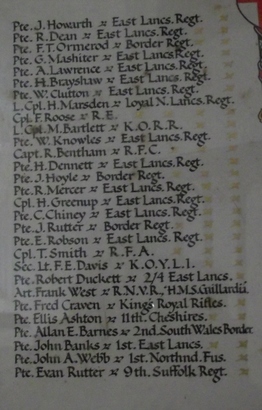 Pte. J. Howarth × East Lancs. Regt.
Pte. R. Dean × East Lancs. Regt.
Pte. F. T. Ormerod × Border Regt.
Pte. G. Mashiter × East Lancs. Regt.
Pte. A. Lawrence × East Lancs. Regt.
Pte. H. Brayshaw × East Lancs. Regt.
Pte. W. Clutton × East Lancs. Regt.
L. Cpl. H. Marsden × Loyal N. Lancs. Regt.
Cpl. F. Roose × R.E.
L. Cpl. M. Bartlett × K.O.R.R.
Pte. W. Knowles × East Lancs. Regt.
Capt. R. Bentham × R.F.C.
Pte. H. Dennett × East Lancs. Regt.
Pte. J. Hoyle × Border Regt.
Pte. R. Mercer × East Lancs. Regt.
Cpl. H. Greenup × East Lancs. Regt.
Pte. C. Chiney × East Lancs. Regt.
Pte. J. Rutter × Border Regt.
Pte. E. Robson × East Lancs. Regt.
Cpl. T. Smith × R.F.A.
Sec. Lt. F. E. Davis × K.O.Y.L.I.
Pte. Robert Duckett × 2/4 East Lancs.
Art. Frank West × R.N.V.R., H.M.S.
Pte. Fred Craven × Kings Royal Rifles.
Pte. Ellis Ashton × 11th. Cheshires.
Pte. Allan E. Barnes × 2nd. South Wales Border.
Pte. John Banks × 1st. East Lancs.
Pte. John A. Webb × 1st. Northnd. Fus.
Pte. Evan Rutter × 9th. Suffolk Regt.